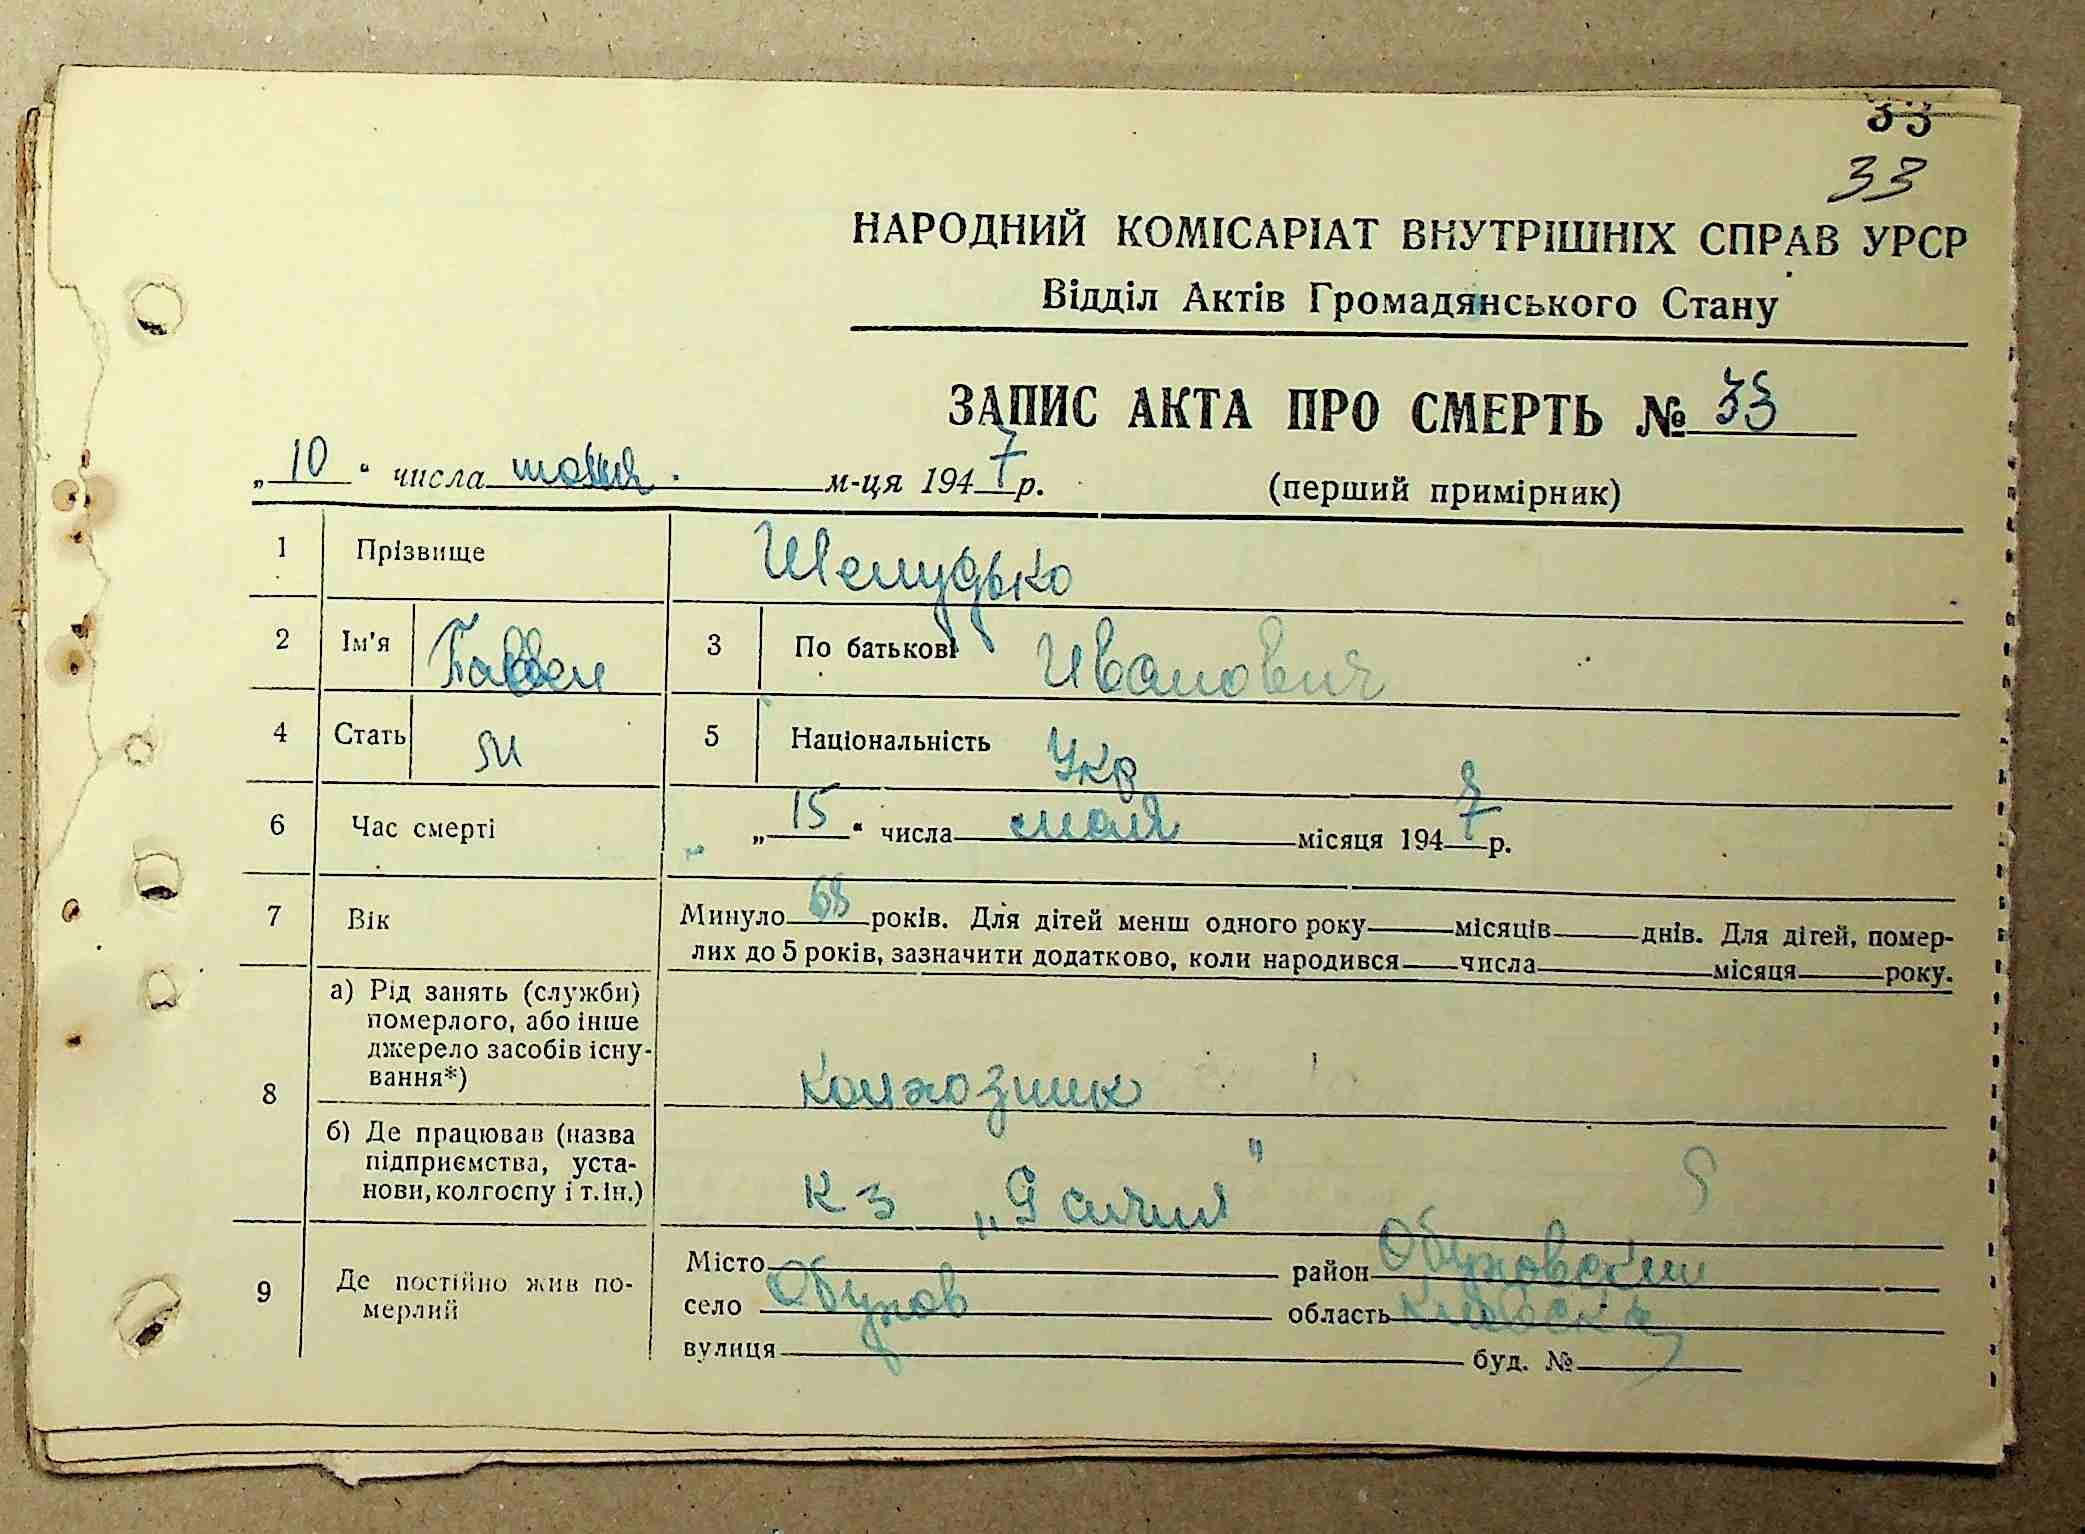 33
33
НАРОДНИЙ КОМІСАРІАТ ВНУТРІШНІХ СПРАВ УРСР
Відділ Актів Громадянського Стану
ЗАПИС АКТА ПРО СМЕРТЬ № 33
„10“ числа м-ця 1947 р. (перший примірник)
1 Прізвище Шелудько
2 Ім'я Павел 3 По батькові Иванович
4 Стать м 5 Національність Укр
6 Час смерті „15“ числа мая місяця 1947 р.
7 Вік Минуло 68 років. Для дітей менш одного року місяців днів. Для дітей, помер-
лих до 5 років, зазначити додатково, коли народився числа місяця року.
8 а) Рід занять (служби)
померлого, або інше
джерело засобів існу-
вання*)
колхозник
б) Де працював (назва
підприємства, уста-
нови, колгоспу і т. ін.)
К з
9 Де постійно жив по-
мерлий
Місто район Обуховский
село Обухов область Киевска
вулиця буд. №